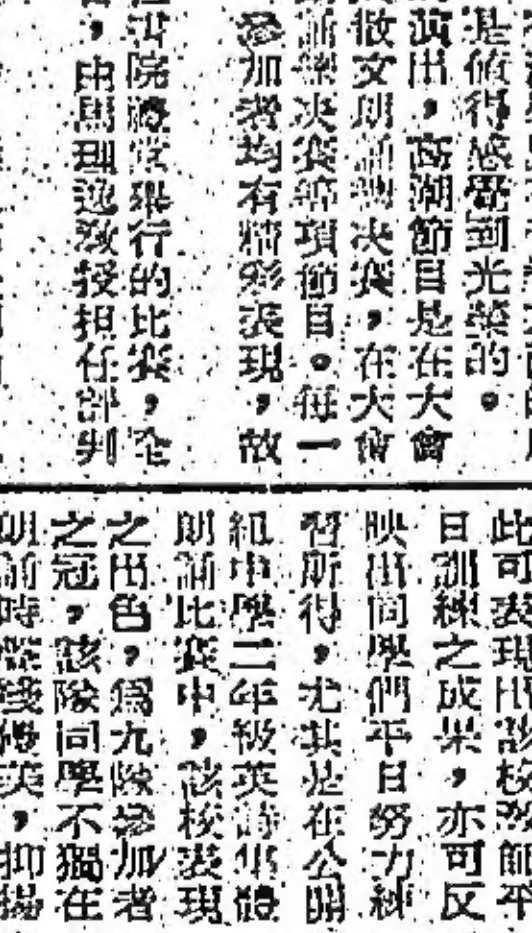 是值得感覺到光榮的。
演出，高潮節目是在大會
散文朗誦決賽，在大會
誦樂決賽等項節目。每一
參加者均有精彩表現，故
書院禮堂舉行的比賽，全
，由馬利逊教授担任評判
此可表現出該校教師平
日訓練之成果，亦可反
映出同學們平日努力練
習所得，尤其是在公開
組中學二年級英詩集體
朗誦比賽中，該校表現
之出色，爲九隊參加者
之冠，該隊同學不獨在
朗誦時 優美，抑揚